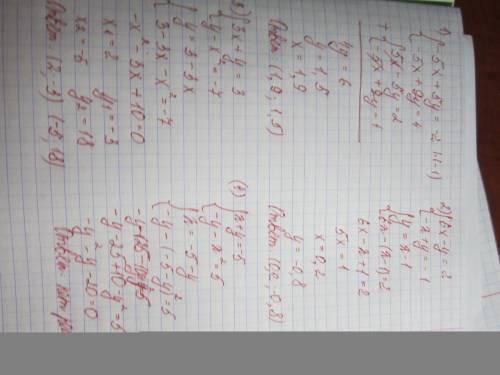 1) { -5x + 5y = -2 | (-1)
{ -5x + 9y = 4
+ { 5x - 5y = 2
{ -5x + 9y = 4
4y = 6
y = 1,5
x = 1,9
Ответ (1,9; 1,5)
2) { 6x - y = 2
{ -x + y = -1
{ y = x - 1
{ 6x - (x-1) = 2
6x - x - 1 = 2
5x = 1
x = 0,2
y = -0,8
Ответ (0,2; -0,8)
{ 3x + y = 3
{ y - x² = -7
{ y = 3 - 3x
{ 3 - 3x - x² = -7
-x² - 3x + 10 = 0
x₁ = 2 y₁ = -3
x₂ = -5 y₂ = 18
Ответ (2; -3) (-5; 18)
{ x + y = -5
{ -y - x² = 5
{ x = -5 - y
{ -y - (-5-y)² = 5
-y - 25 + 10 - y² = 5
-y² - y - 20 = 0
Ответ: нет